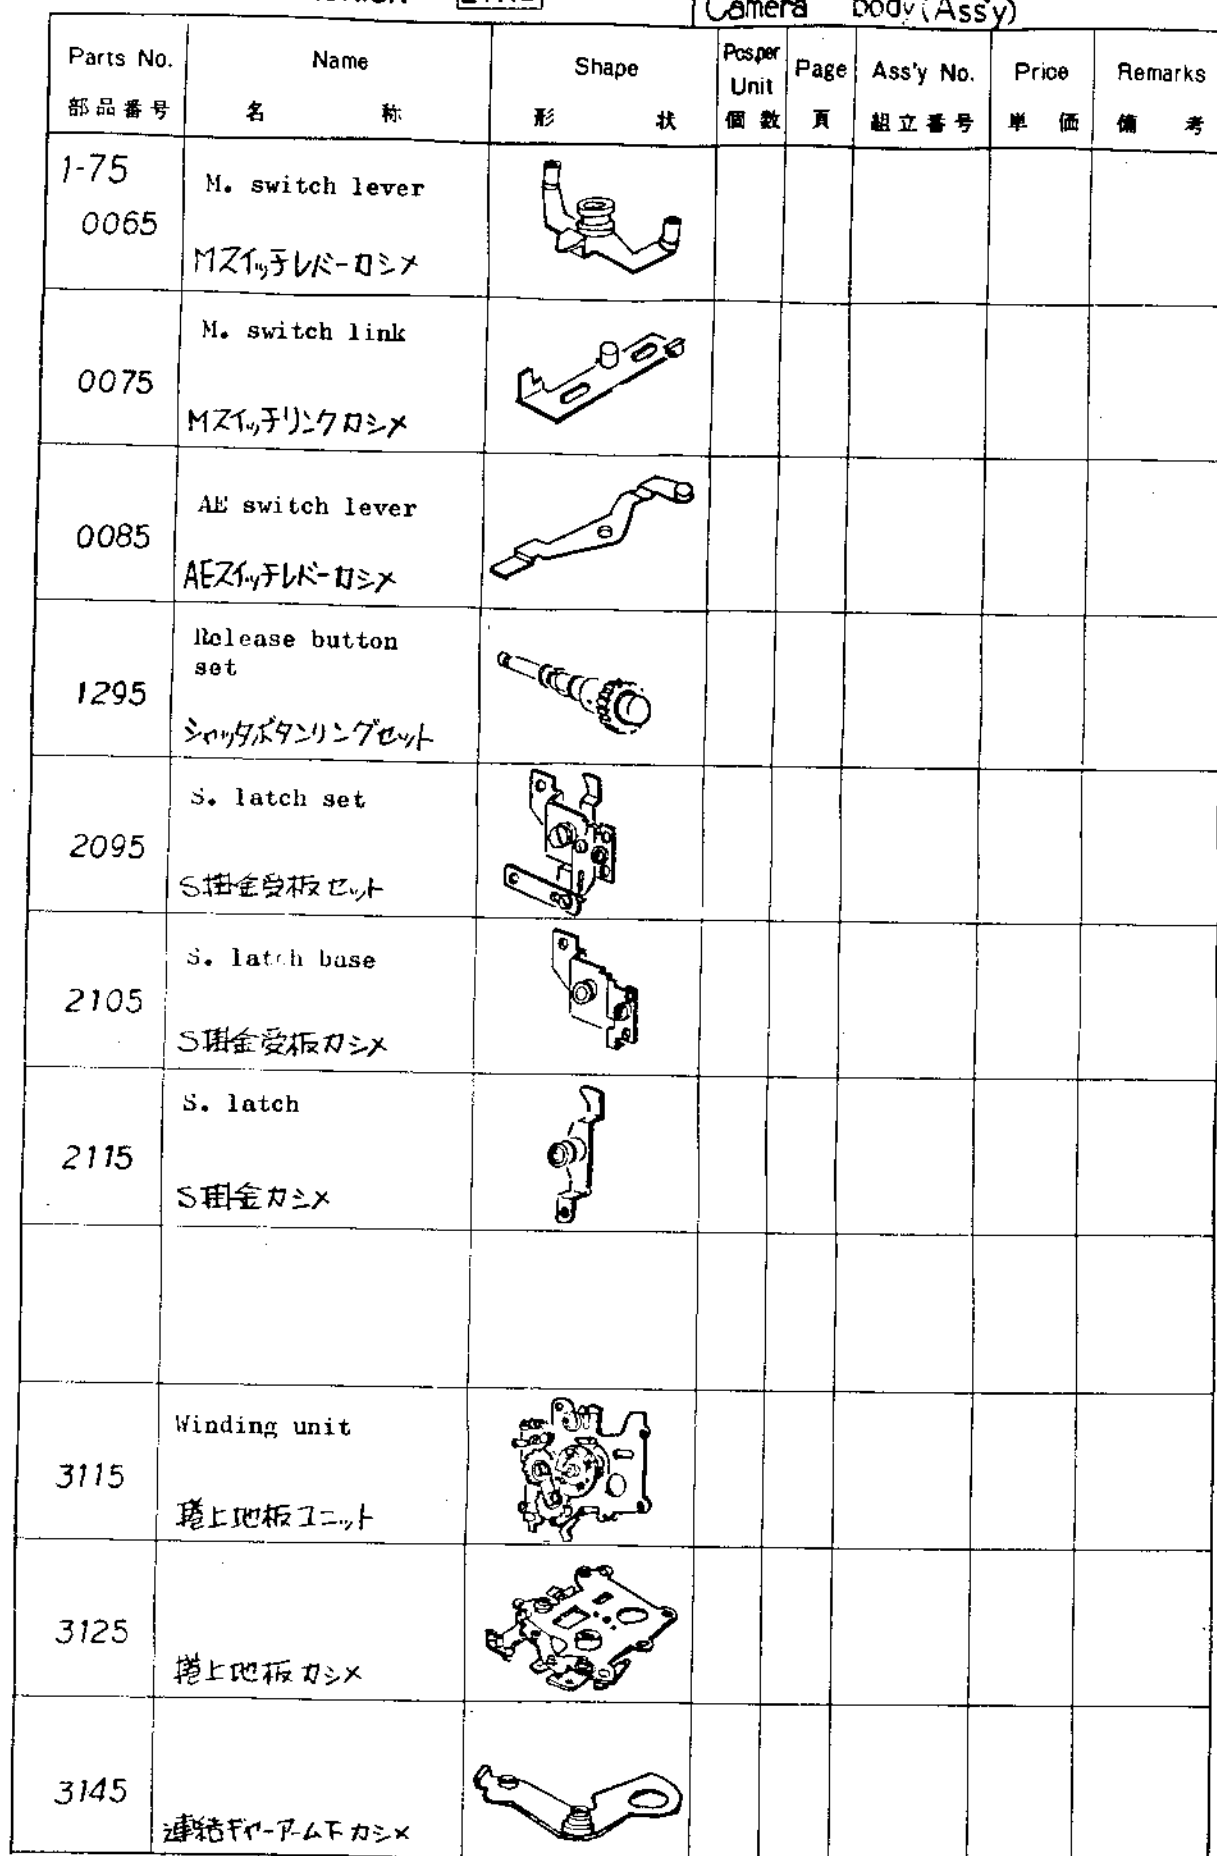 Camera body (Ass'y)
Parts No. Name Shape Pcs.per Unit Page Ass'y No. Price Remarks
部品番号 名称 形状 個数 頁 組立番号 単価 備考
1-75
0065
M. switch lever
Mスイッチレバーカシメ
0075
M. switch link
Mスイッチリンクカシメ
0085
AE switch lever
AEスイッチレバーカシメ
1295
Release button
set
シャッタボタンリングセット
2095
S. latch set
S掛金受板セット
2105
S. latch base
S掛金受板カシメ
2115
S. latch
S掛金カシメ
3115
Winding unit
捲上地板ユニット
3125
捲上地板カシメ
3145
連結ギャーアーム下カシメ